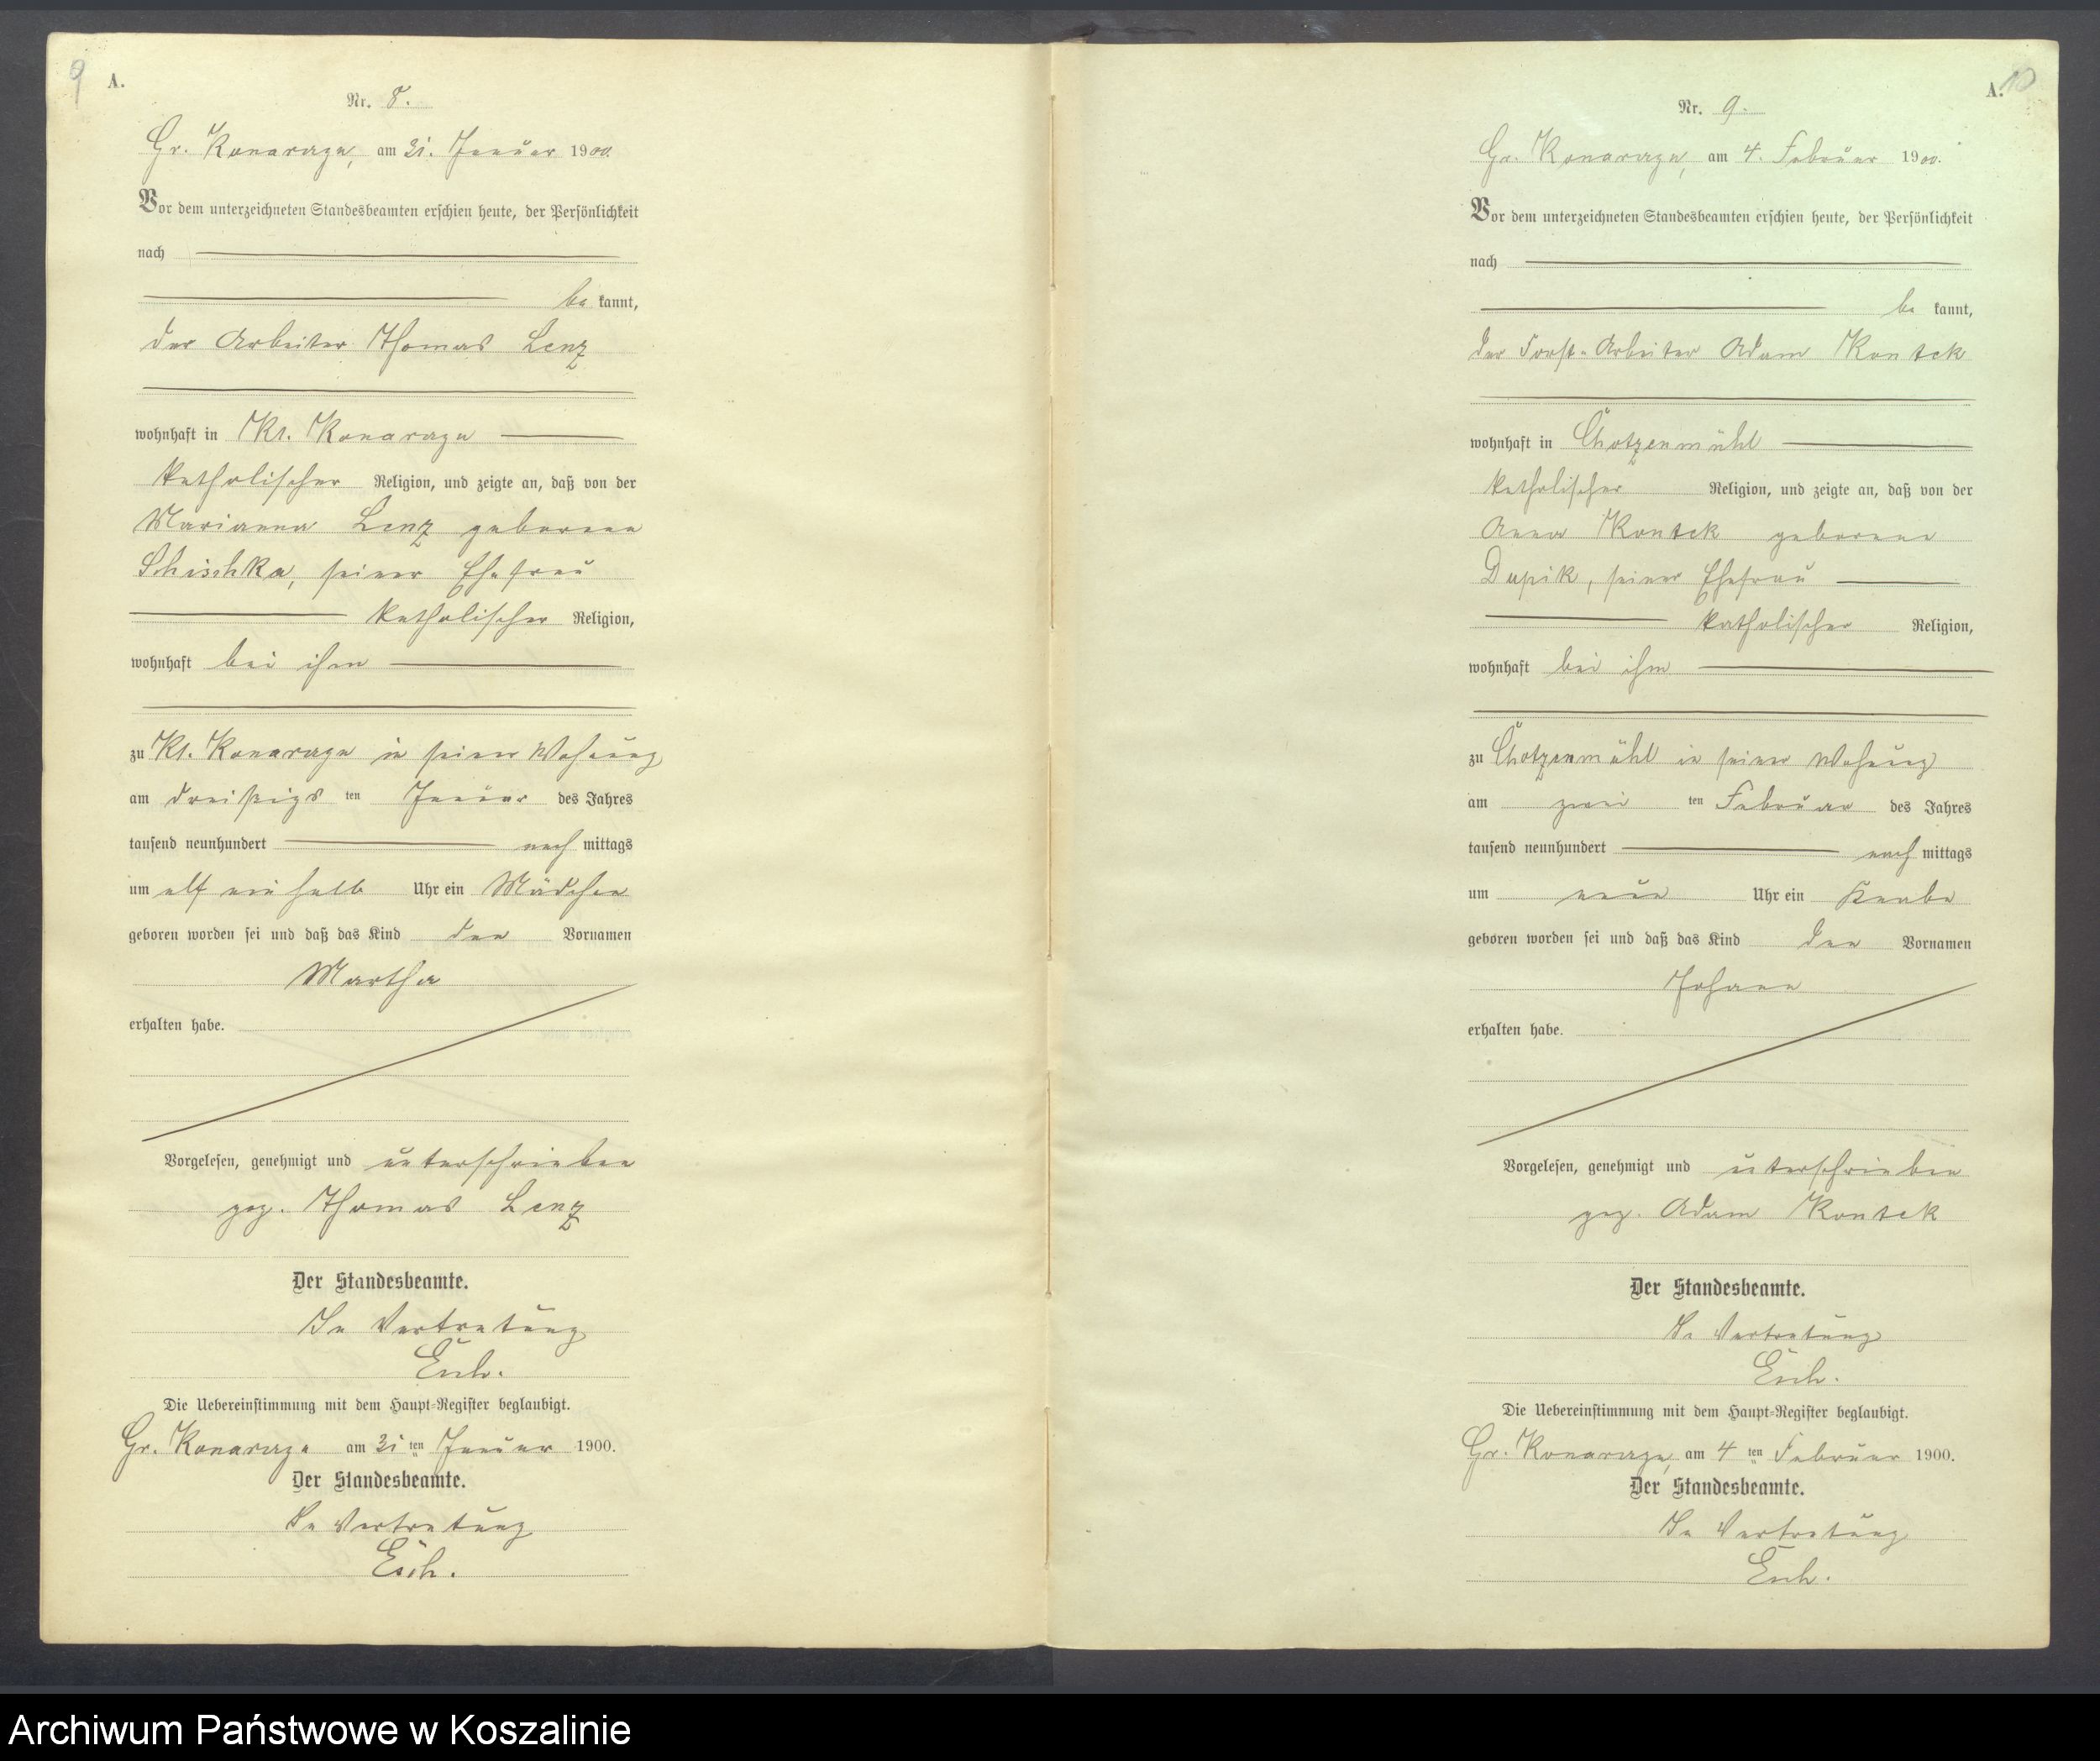 9
A.
Nr. 8.
Gr. Konarczyn, am 31. Januar 1900.
Vor dem unterzeichneten Standesbeamten erschien heute, der Persönlichkeit
nach
be kannt,
der Arbeiter Thomas Lenz
wohnhaft in Kl. Konarczyn
katholischer Religion, und zeigte an, daß von der
Marianna Lenz geborene
Schischka, seiner Ehefrau
katholischer Religion,
wohnhaft bei ihm
zu Kl. Konarczyn in seiner Wohnung
am dreißigs ten Januar des Jahres
tausend neunhundert nach mittags
um elf ein halb Uhr ein Mädchen
geboren worden sei und daß das Kind den Vornamen
Martha
erhalten habe.
Vorgelesen, genehmigt und unterschrieben
gez. Thomas Lenz
Der Standesbeamte.
In Vertretung
Esch.
Die Uebereinstimmung mit dem Haupt-Register beglaubigt.
Gr. Konarczyn am 31 ten Januar 1900.
Der Standesbeamte.
In Vertretung
Esch.
A. 10
Nr. 9.
Gr. Konarczyn, am 4. Februar 1900.
Vor dem unterzeichneten Standesbeamten erschien heute, der Persönlichkeit
nach
be kannt,
der Forst-Arbeiter Adam Kontek
wohnhaft in Chotzenmühl
katholischer Religion, und zeigte an, daß von der
Anna Kontek geborene
Dupik, seiner Ehefrau
katholischer Religion,
wohnhaft bei ihm
zu Chotzenmühl in seiner Wohnung
am zwei ten Februar des Jahres
tausend neunhundert nach mittags
um neun Uhr ein Knabe
geboren worden sei und daß das Kind den Vornamen
Johann
erhalten habe.
Vorgelesen, genehmigt und unterschrieben
gez. Adam Kontek
Der Standesbeamte.
In Vertretung
Esch.
Die Uebereinstimmung mit dem Haupt-Register beglaubigt.
Gr. Konarczyn, am 4 ten Februar 1900.
Der Standesbeamte.
In Vertretung
Esch.
Archiwum Państwowe w Koszalinie